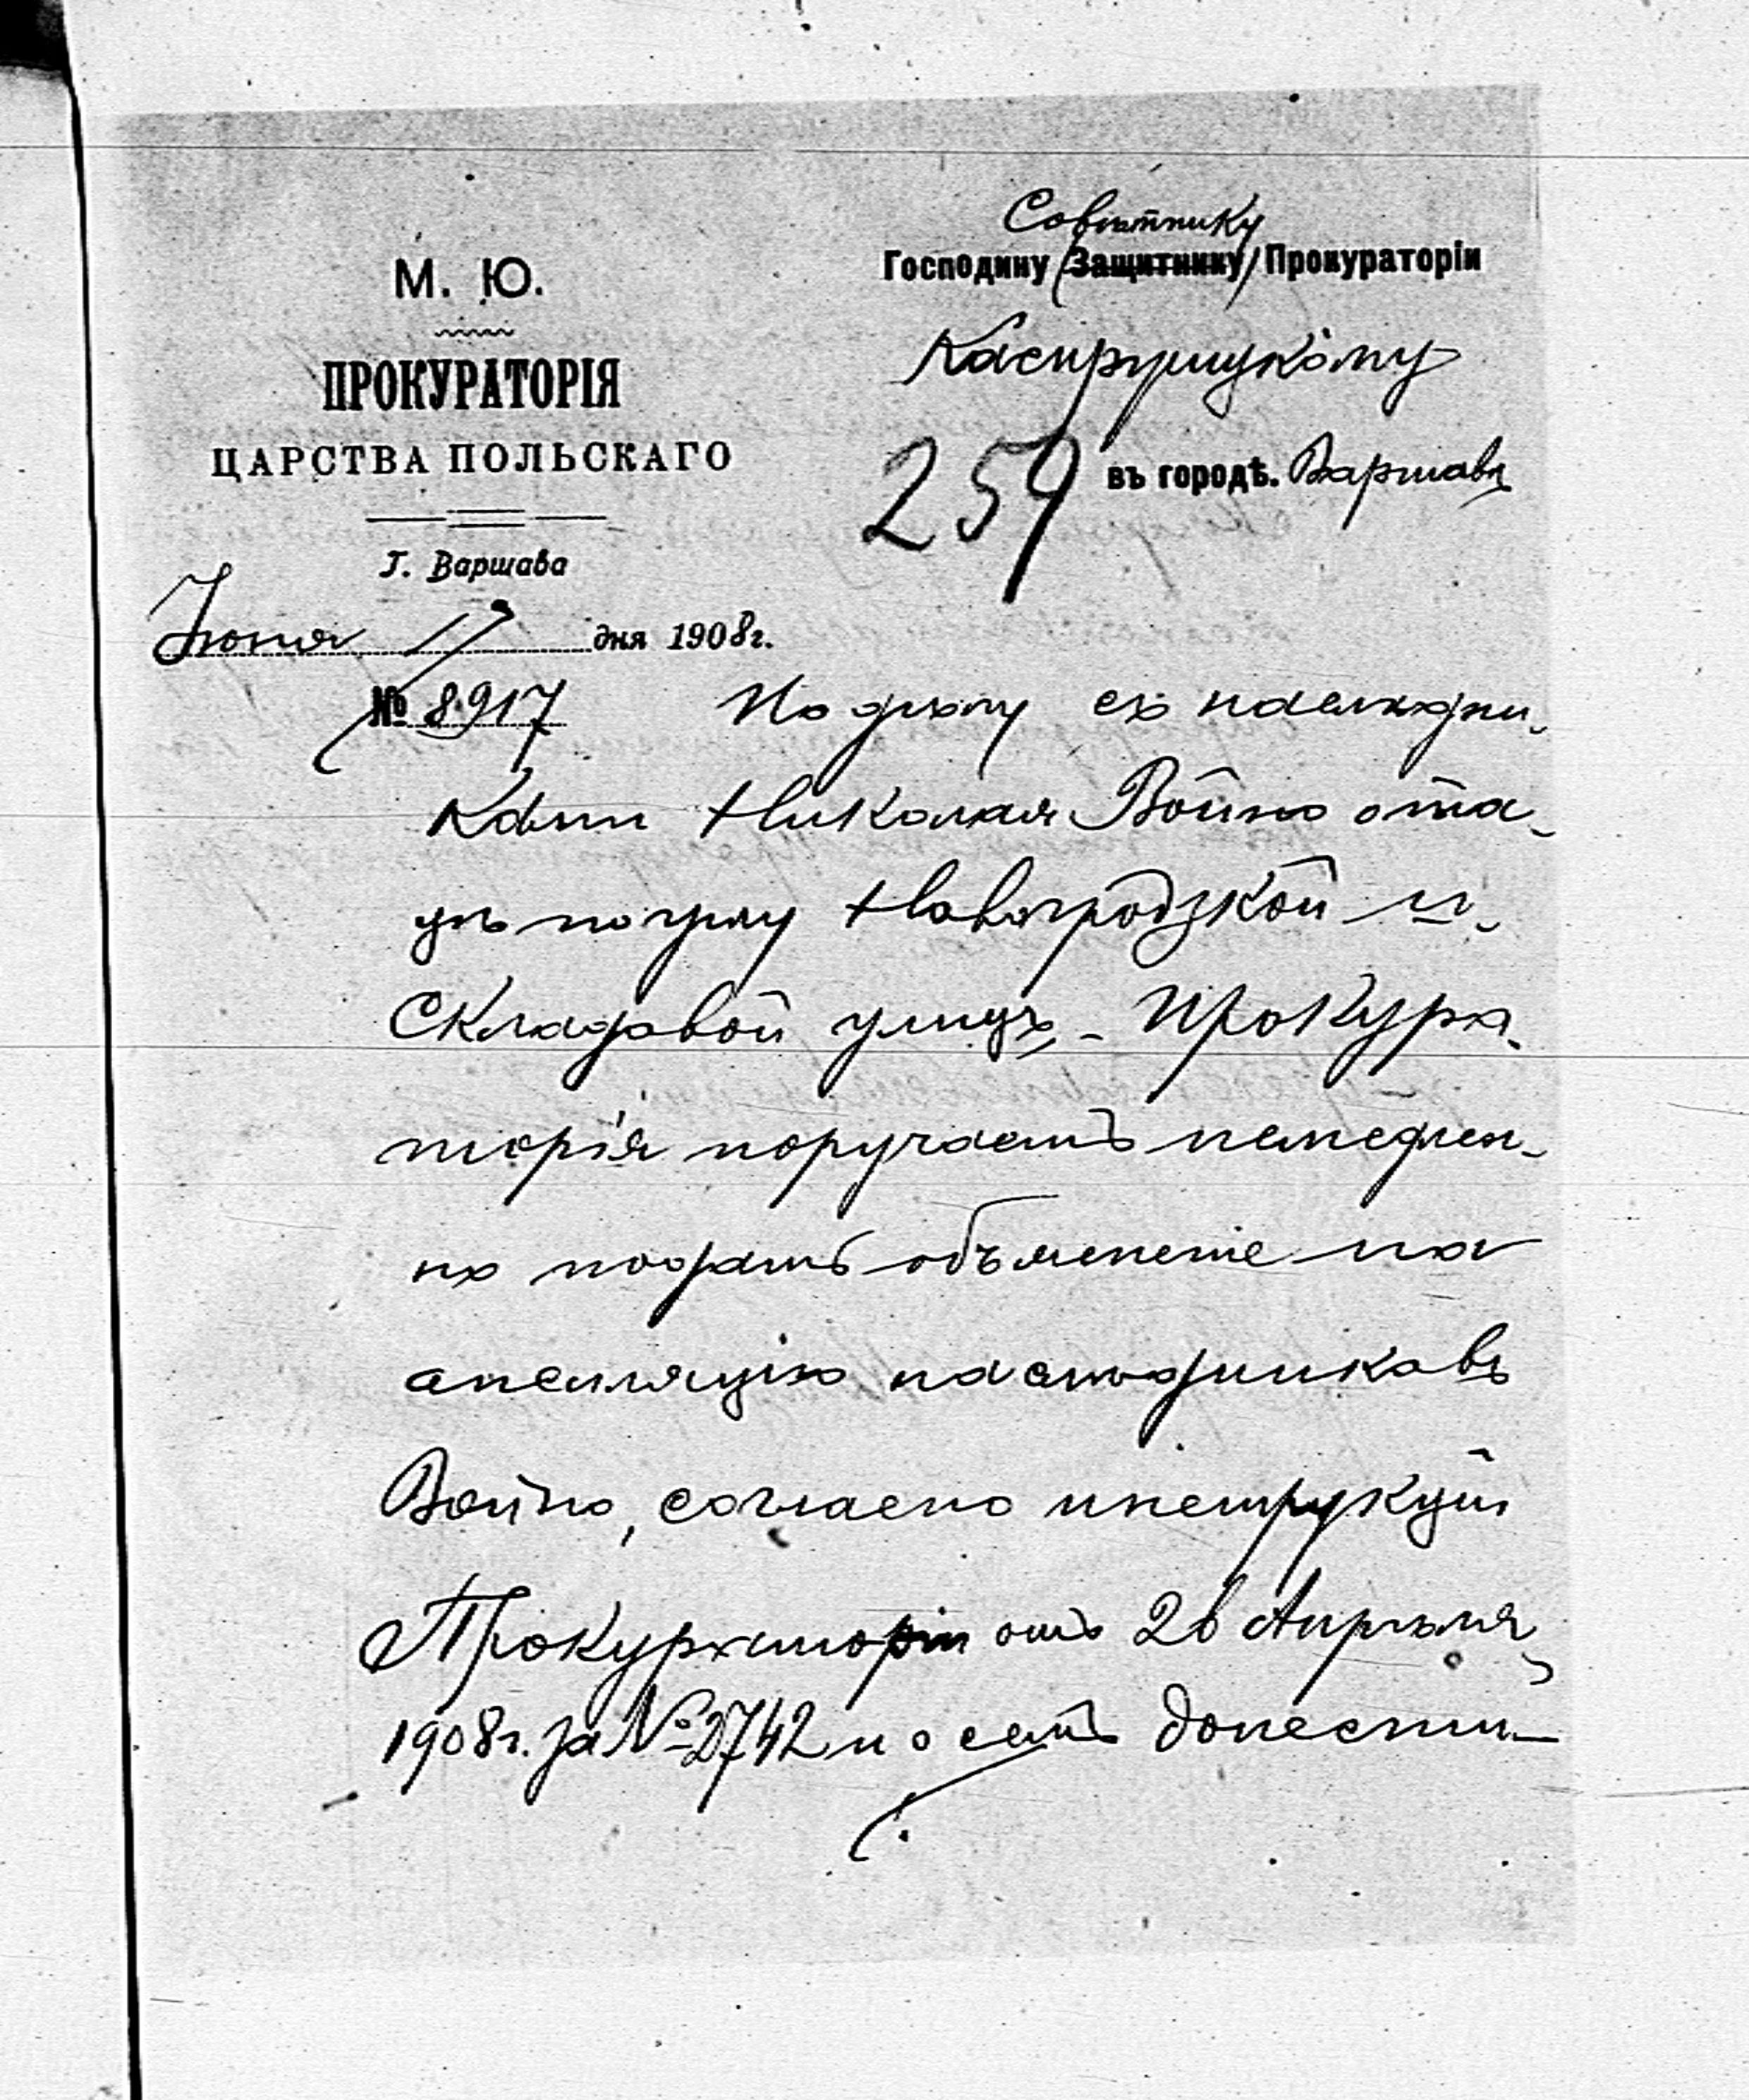 Совѣтнику
Господину (Защитнику) Прокураторіи
М. Ю.
ПРОКУРАТОРІЯ
Каспржицкому
ЦАРСТВА ПОЛЬСКАГО
259 въ городѣ. Варшавѣ
Г. Варшава
Іюня 17 дня 1908г.
№ 8917 По дѣлу съ наслѣдни-
ками Николая Войно о пла-
цѣ по углу Новогродзкой и
Складовой улицъ, - Прокура-
торія поручаетъ немедлен-
но подать объясненіе на
апелляцію наслѣдниковъ
Войно, согласно инструкціи
Прокураторіи отъ 26 Апрѣля
1908г. за № 2742 и о семъ донести.